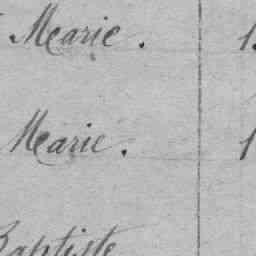 Marie. 1
Marie. 1
Baptiste